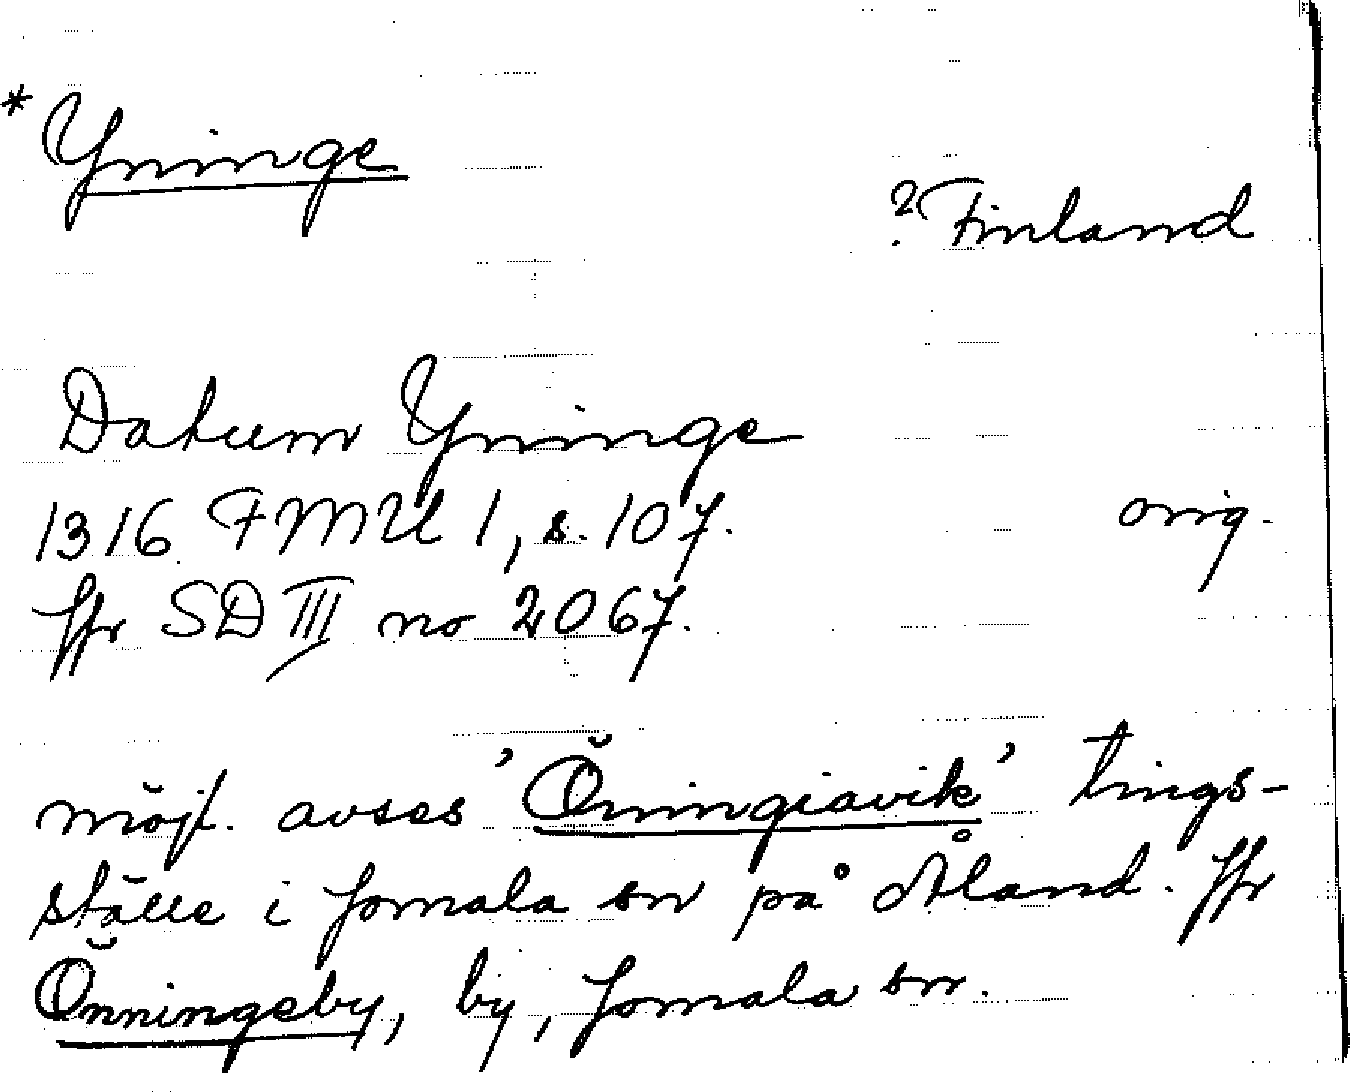 *Yninge
? Finland
Datum Yninge
1316 FMU 1, s. 107. orig.
Jfr SD III no 2067.
möjl. avses 'Öningiavik' tings-
ställe i Jomala sn på Åland. Jfr
Önningeby, by, Jomala sn.